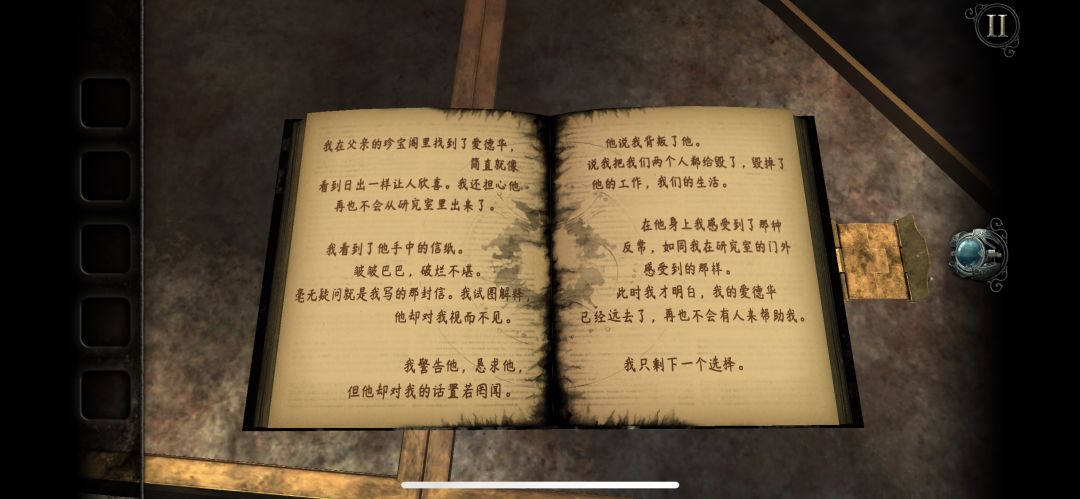 我在父亲的珍宝阁里找到了爱德华，
简直就像
看到日出一样让人欣喜。我还担心他
再也不会从研究室里出来了。
我看到了他手中的信纸。
皱皱巴巴，破烂不堪。
毫无疑问就是我写的那封信。我试图解释，
他却对我视而不见。
我警告他，恳求他，
但他却对我的话置若罔闻。
他说我背叛了他。
说我把我们两个人都给毁了，毁掉了
他的工作，我们的生活。
在他身上我感受到了那种
反常，如同我在研究室的门外
感受到的那样。
此时我才明白，我的爱德华
已经远去了，再也不会有人来帮助我。
我只剩下一个选择。
II